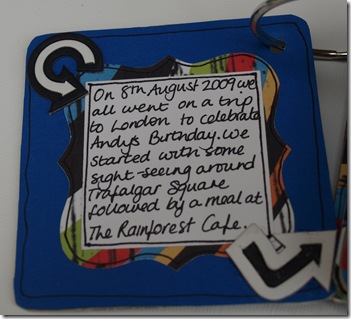 On 8th August 2009 we
all went on a trip
to London to celebrate
Andys Birthday. We
started with some
sight-seeing around
Trafalgar Square
followed by a meal at
The Rainforest Cafe.